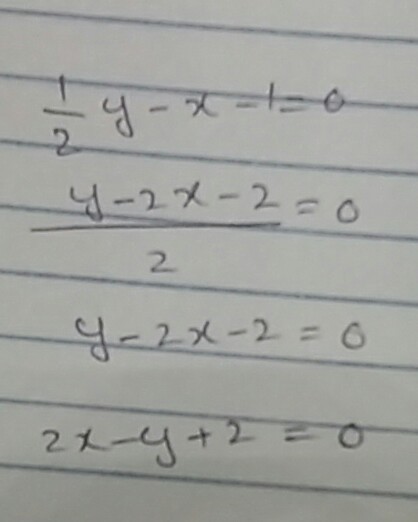 1/2 y - x - 1 = 0
y - 2x - 2 / 2 = 0
y - 2x - 2 = 0
2x - y + 2 = 0